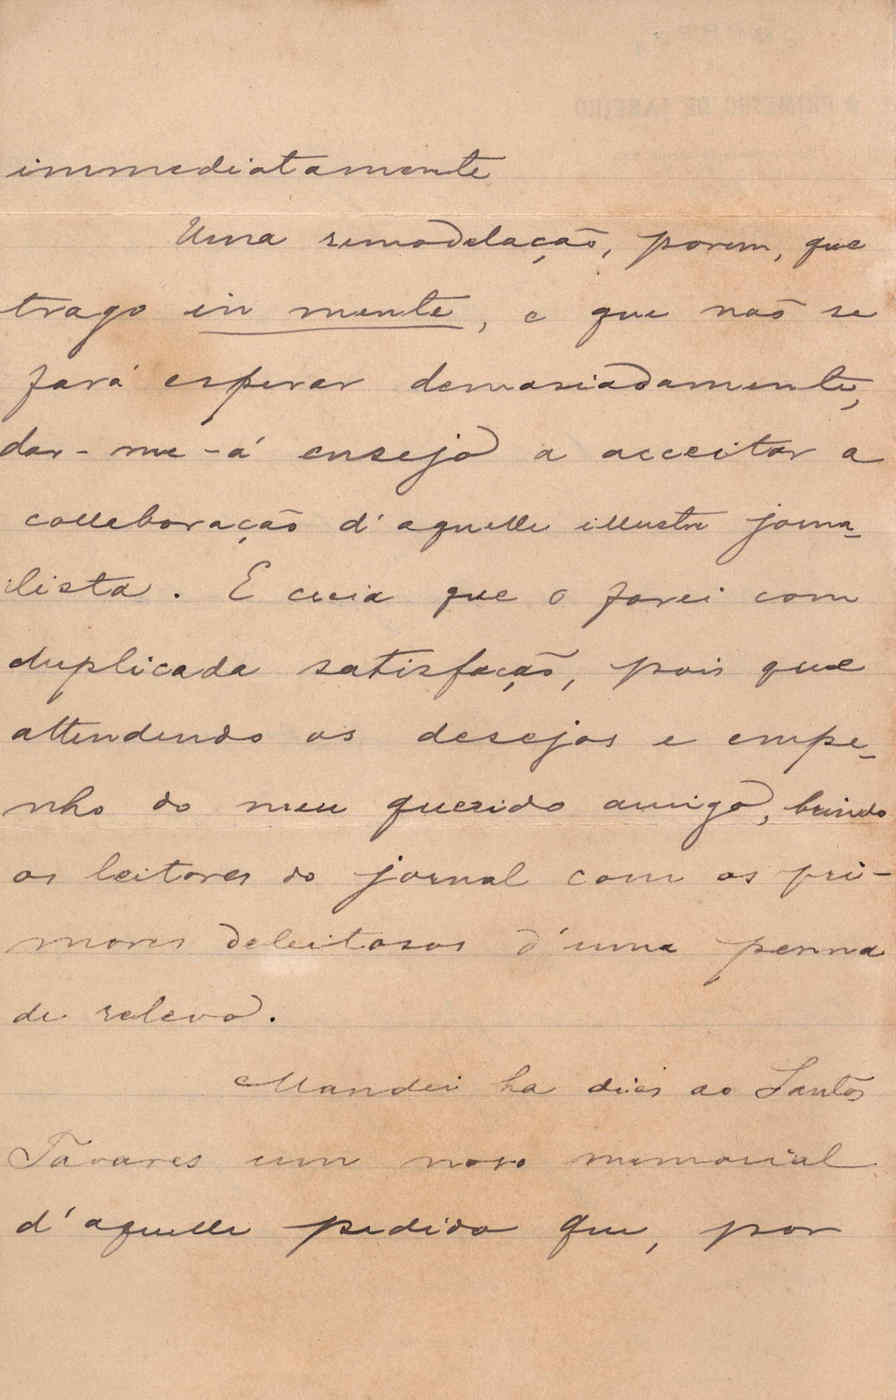 immediatamente
Uma remodelação, porem, que
trago in mente, e que não se
fará esperar demasiadamente,
dar-me-á ensejo a acceitar a
collaboração d'aquelle illustre jorna-
lista. E creia que o farei com
duplicada satisfação, pois que
attendendo os desejos e empe-
nho do meu querido amigo, brindo
os leitores do jornal com os pri-
mores deleitosos d'uma penna
de relevo.
Mandei ha dias ao Santos
Tavares um novo memorial
d'aquelle pedido que, por